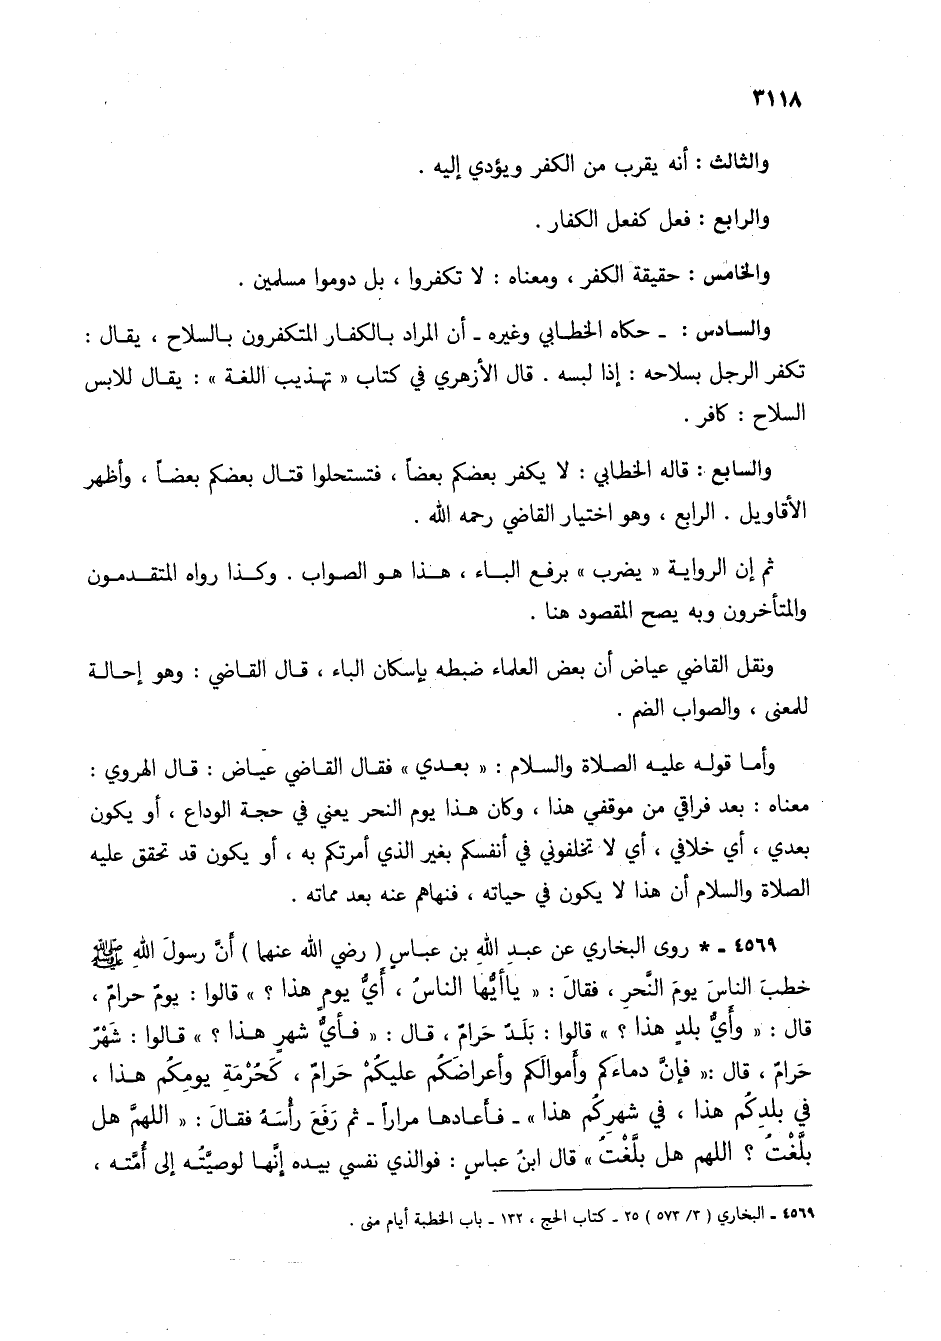 ٣١١٨
والثالث : أنه يقرب من الكفر ويؤدي إليه .
والرابع : فعل كفعل الكفار .
والخامس : حقيقة الكفر ، ومعناه : لا تكفروا ، بل دوموا مسلمين .
والسادس : ـ حكاه الخطابي وغيره ـ أن المراد بالكفار المتكفرون بالسلاح ، يقال :
تكفر الرجل بسلاحه : إذا لبسه . قال الأزهري في كتاب « تهذيب اللغة » : يقال للابس
السلاح : كافر .
والسابع : قاله الخطابي : لا يكفر بعضكم بعضاً ، فتستحلوا قتال بعضكم بعضاً ، وأظهر
الأقاويل . الرابع ، وهو اختيار القاضي رحمه الله .
ثم إن الرواية « يضرب » برفع الباء ، هذا هو الصواب . وكذا رواه المتقدمون
والمتأخرون وبه يصح المقصود هنا .
ونقل القاضي عياض أن بعض العلماء ضبطه بإسكان الباء ، قال القاضي : وهو إحالة
للمعنى ، والصواب الضم .
وأما قوله عليه الصلاة والسلام : « بعدي » فقال القاضي عياض : قال الهروي :
معناه : بعد فراقي من موقفي هذا ، وكان هذا يوم النحر يعني في حجة الوداع ، أو يكون
بعدي ، أي خلافي ، أي لا تخلفوني في أنفسكم بغير الذي أمرتكم به ، أو يكون قد تحقق عليه
الصلاة والسلام أن هذا لا يكون في حياته ، فنهاهم عنه بعد مماته .
٤٥٦٩ ـ * روى البخاري عن عبدِ اللهِ بن عباسٍ ( رضي الله عنهما ) أَنَّ رسولَ اللهِ ﷺ
خطبَ الناسَ يومَ النَّحرِ ، فقالَ : « ياأَيُّها الناسُ ، أَيُّ يومٍ هذا ؟ » قالوا : يومٌ حرامٌ ،
قال : « وأَيُّ بلدٍ هذا ؟ » قالوا : بَلَدٌ حَرامٌ ، قال : « فأيُّ شهرٍ هذا ؟ » قالوا : شَهْرٌ
حَرامٌ ، قال :« فإنَّ دماءَكم وأَموالَكم وأعراضَكُم عليكُمْ حَرامٌ ، كَحُرْمَةِ يومِكُم هذا ،
في بلدِكُم هذا ، في شهرِكُم هذا »ـ فأعادها مراراً ـ ثم رَفَعَ رأْسَهُ فقالَ : « اللهمَّ هل
بلَّغْتُ ؟ اللهم هل بلَّغْتُ » قال ابنُ عباسٍ : فوالذي نفسي بيده إنَّها لوصيَّتُه إلى أُمَّته ،
٤٥٦٩ ـ البخاري ( ٣/ ٥٧٣ ) ٢٥ ـ كتاب الحج ، ١٣٢ ـ باب الخطبة أيام منى .